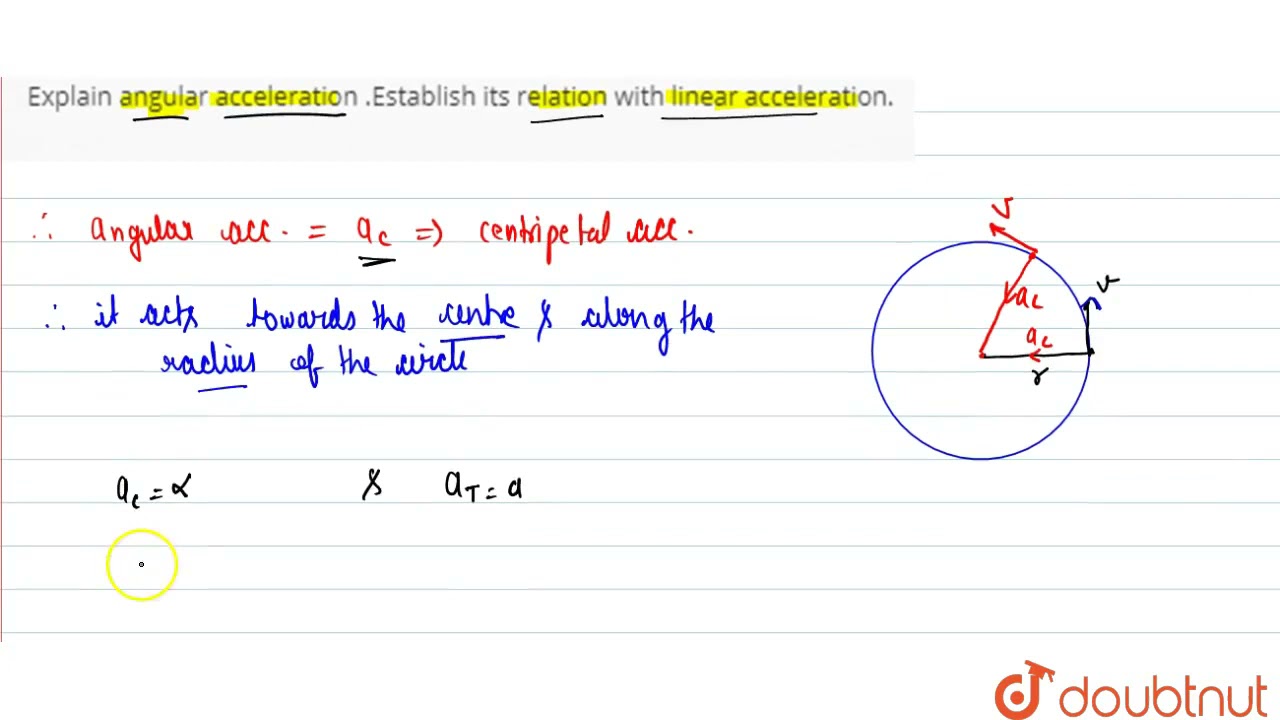 Explain angular acceleration .Establish its relation with linear acceleration.
∴ angular acc. = a_c ⇒ centripetal acc.
∴ it acts towards the centre & along the
radius of the circle
V
a_c
v
a_c
r
a_c = α & a_T = a
doubtnut